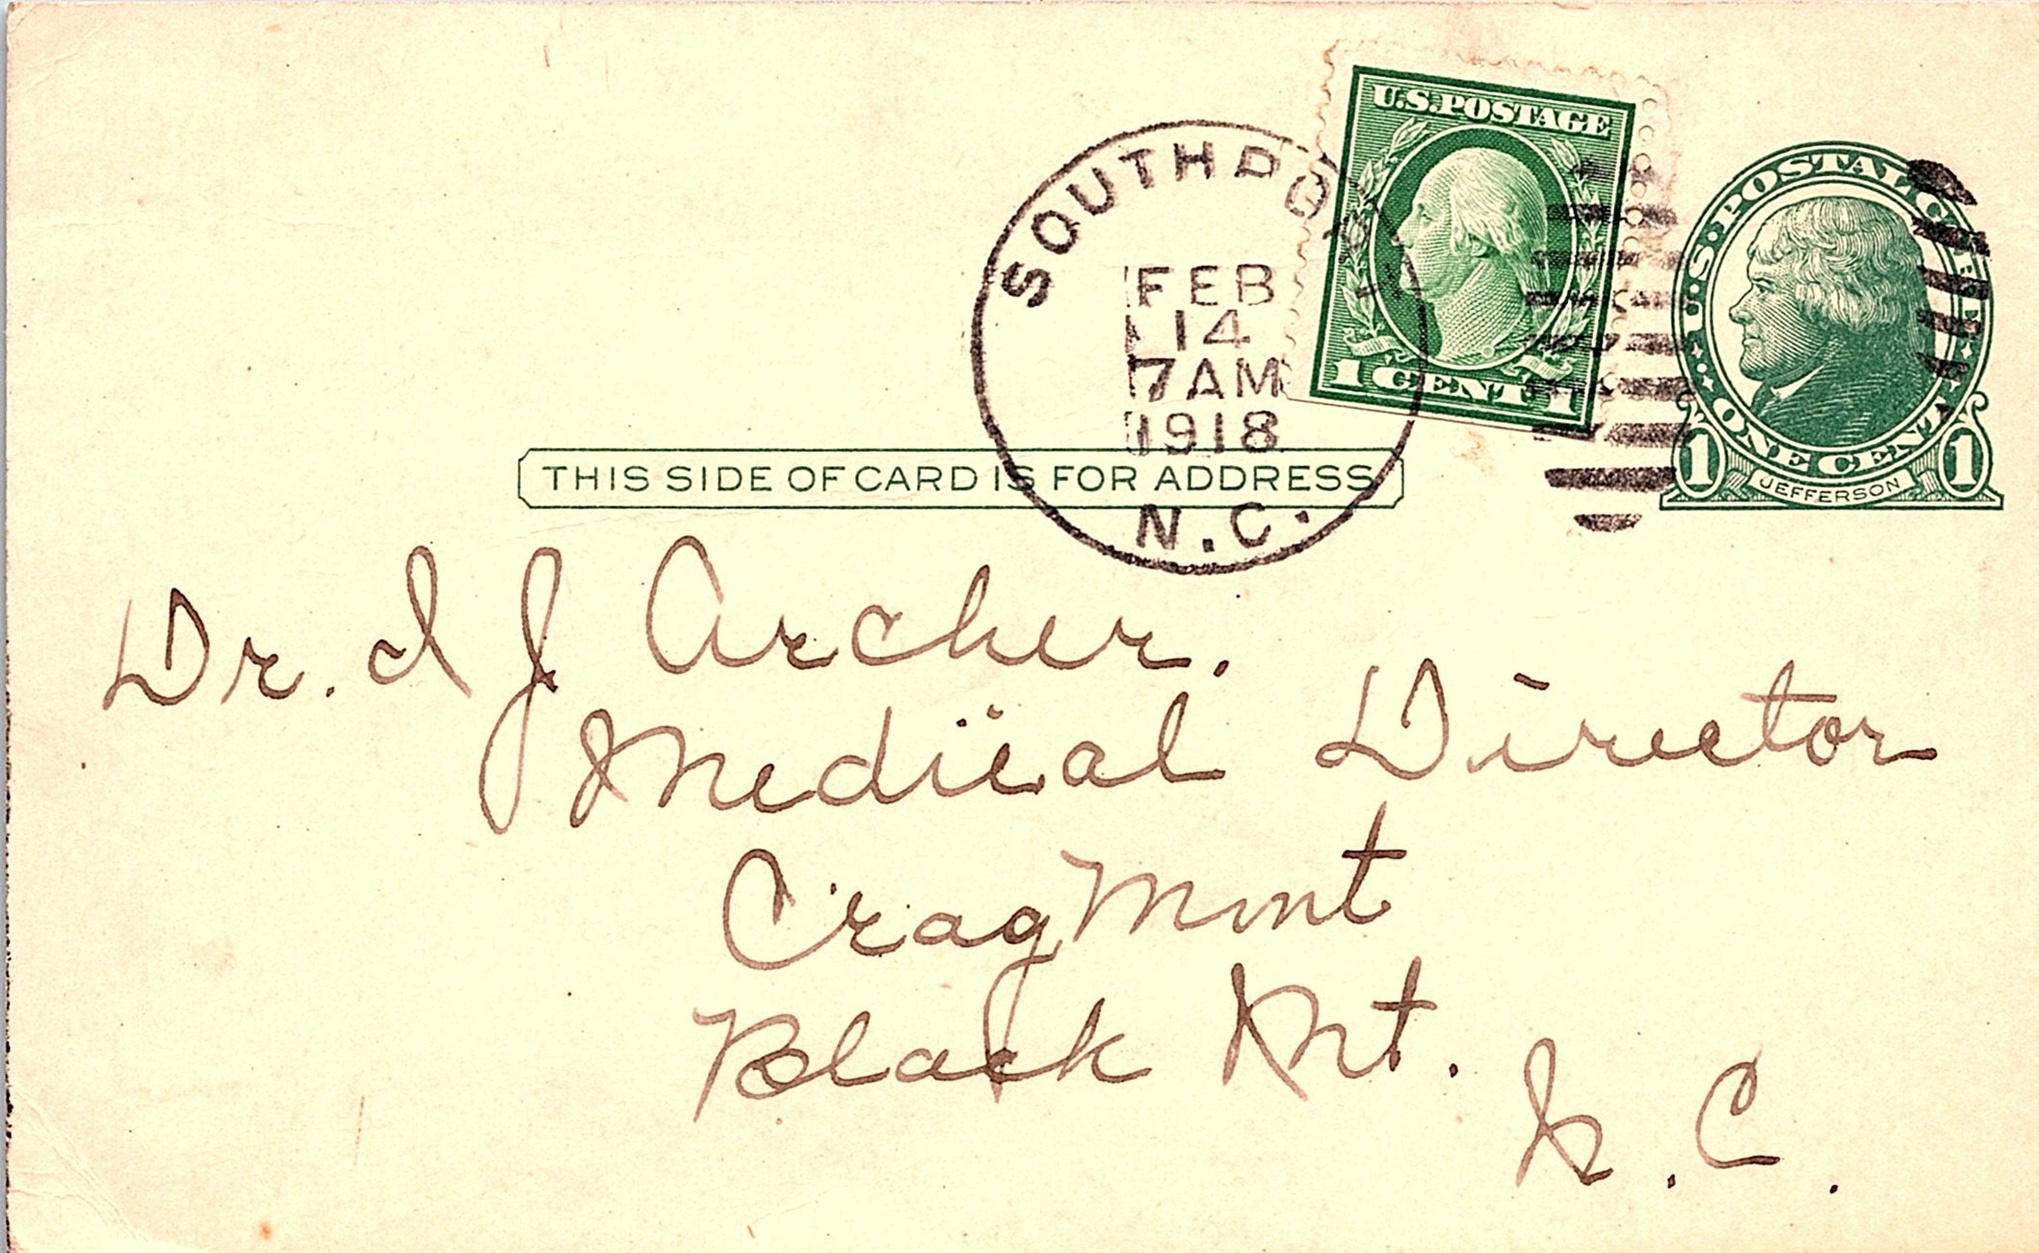 U.S. POSTAGE
1 CENT 1
U.S. POSTAL CARD
ONE CENT
1 JEFFERSON 1
SOUTHPORT
FEB
14
7 AM
1918
N.C.
THIS SIDE OF CARD IS FOR ADDRESS
Dr. I J Archer.
Medical Director
CragMont
Black Mt.
N.C.